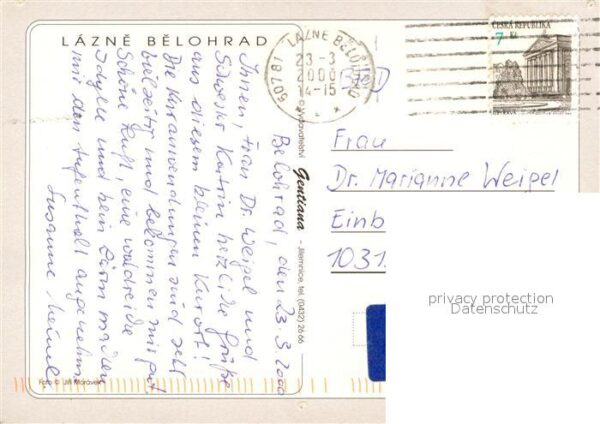 LÁZNĚ BĚLOHRAD
LÁZNĚ BĚLOHRAD
23-3
2000
14-15
507 81
ČESKÁ REPUBLIKA
7 Kč
Belohrad, den 23.3.2000
Ihnen, Frau Dr. Weigel und
Schwester Katrin herzliche Grüße
aus diesem kleinen Kurort!
Die Kuranwendungen sind sehr
beliebt und bekommen mir gut.
Schöne Luft, eine waldreiche
Idylle und kein Lärm machen
mir den Aufenthalt angenehm.
Susanne
Gentiana
– Jilemnice, tel. (0432) 26 66
Foto © Jiří Morávek
Frau
Dr. Marianne Weigel
Einb
1031
privacy protection
Datenschutz